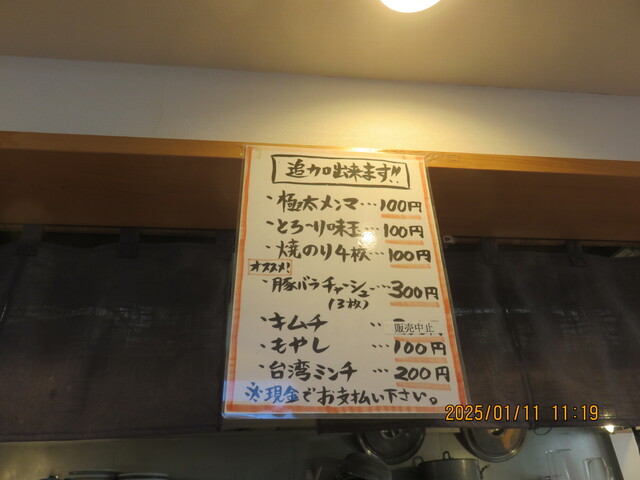 追加出来ます!!
・極太メンマ…100円
・とろ〜り味玉…100円
・焼のり4枚…100円
オススメ!
・豚バラチャーシュ…300円
(3枚)
・キムチ … 販売中止
・もやし 100円
・台湾ミンチ … 200円
※現金でお支払い下さい。
2025/01/11 11:19